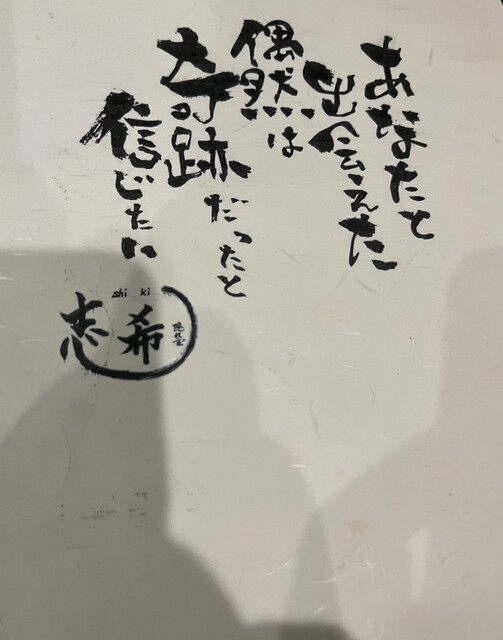 あなたと
出会えた
偶然は
奇跡だったと
信じたい
shi ki
志希